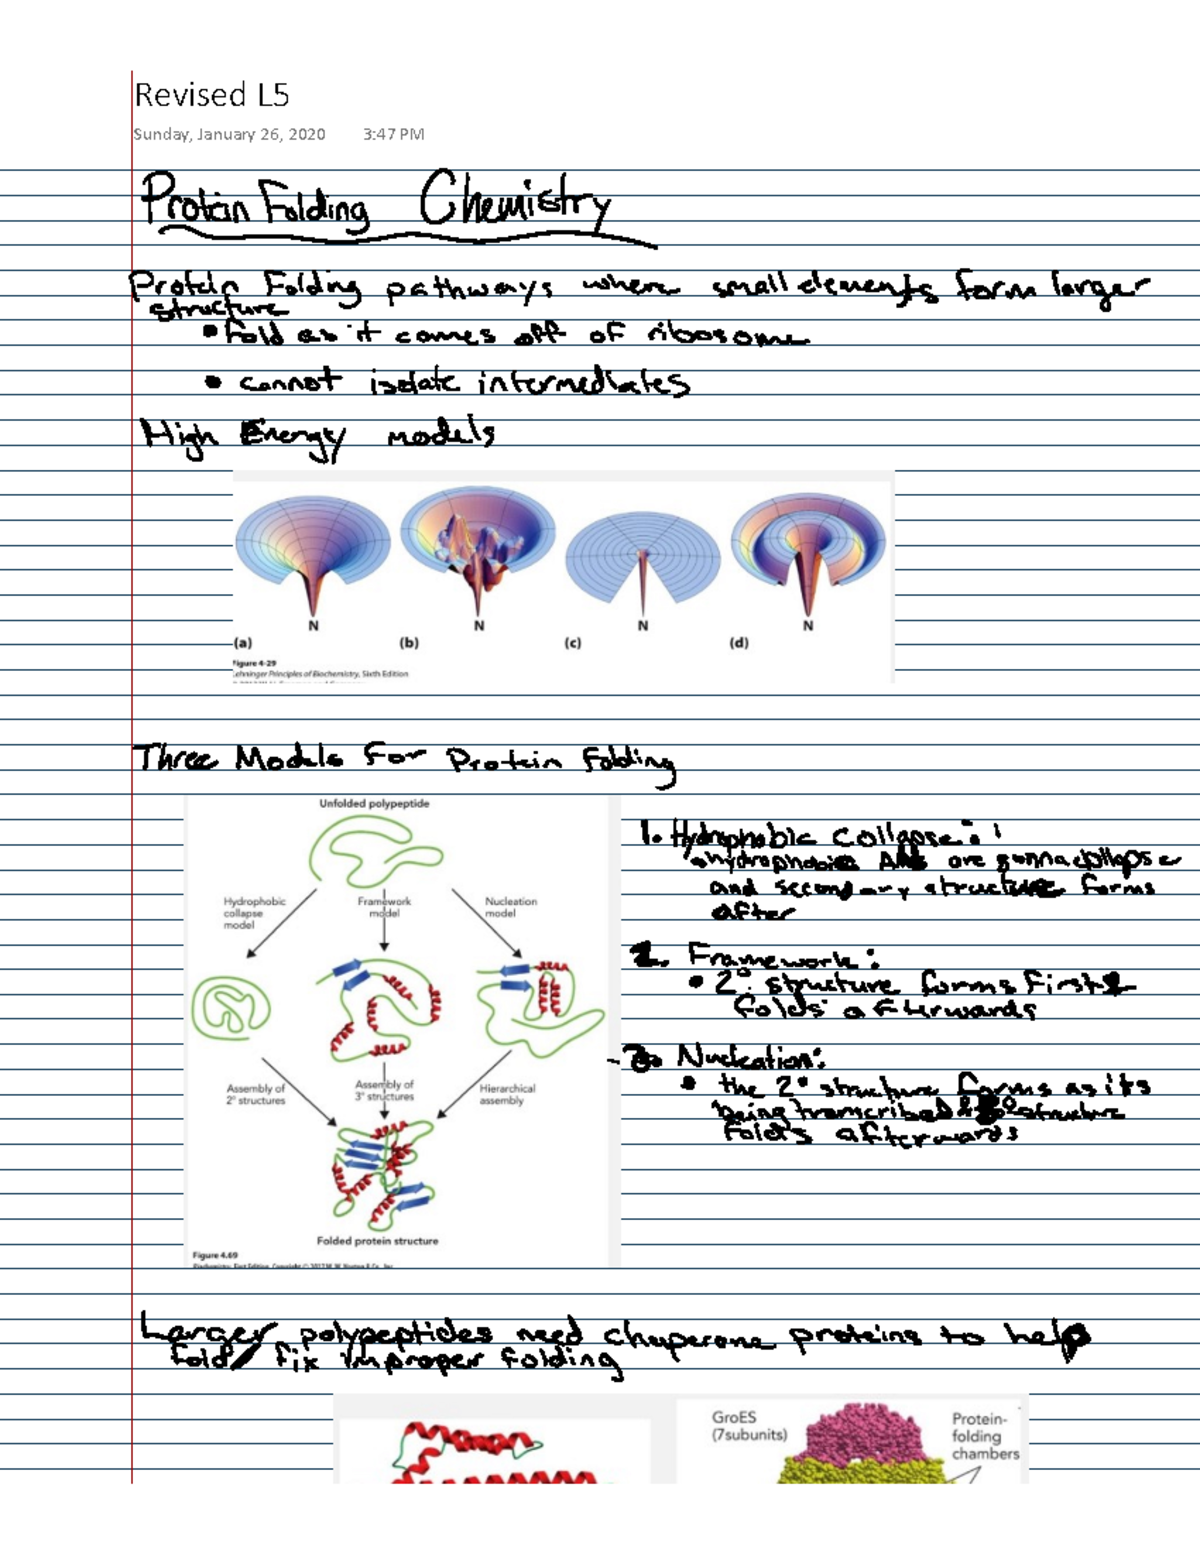 Revised L5
Sunday, January 26, 2020 3:47 PM
Protein Folding Chemistry
Protein Folding pathways where small elements form larger
structure
• fold as it comes off of ribosome
• cannot isolate intermediates
High Energy models
N N N N
(a) (b) (c) (d)
Figure 4-29
Lehninger Principles of Biochemistry, Sixth Edition
Three Models For Protein Folding
Unfolded polypeptide
Hydrophobic
collapse
model
Framework
model
Nucleation
model
Assembly of
2° structures
Assembly of
3° structures
Hierarchical
assembly
Folded protein structure
Figure 4.69
Biochemistry, First Edition, Copyright © 2017 W. W. Norton & Co., Inc.
1. Hydrophobic Collapse:
hydrophobic AAs are gonna collapse
and secondary structure forms
after
2. Framework:
• 2° structure forms first &
folds afterwards
3. Nucleation:
• the 2° structure forms as its
being transcribed & 3° structure
folds afterwards
Larger polypeptides need chaperone proteins to help
fold/ fix improper folding
GroES
(7subunits)
Protein-
folding
chambers